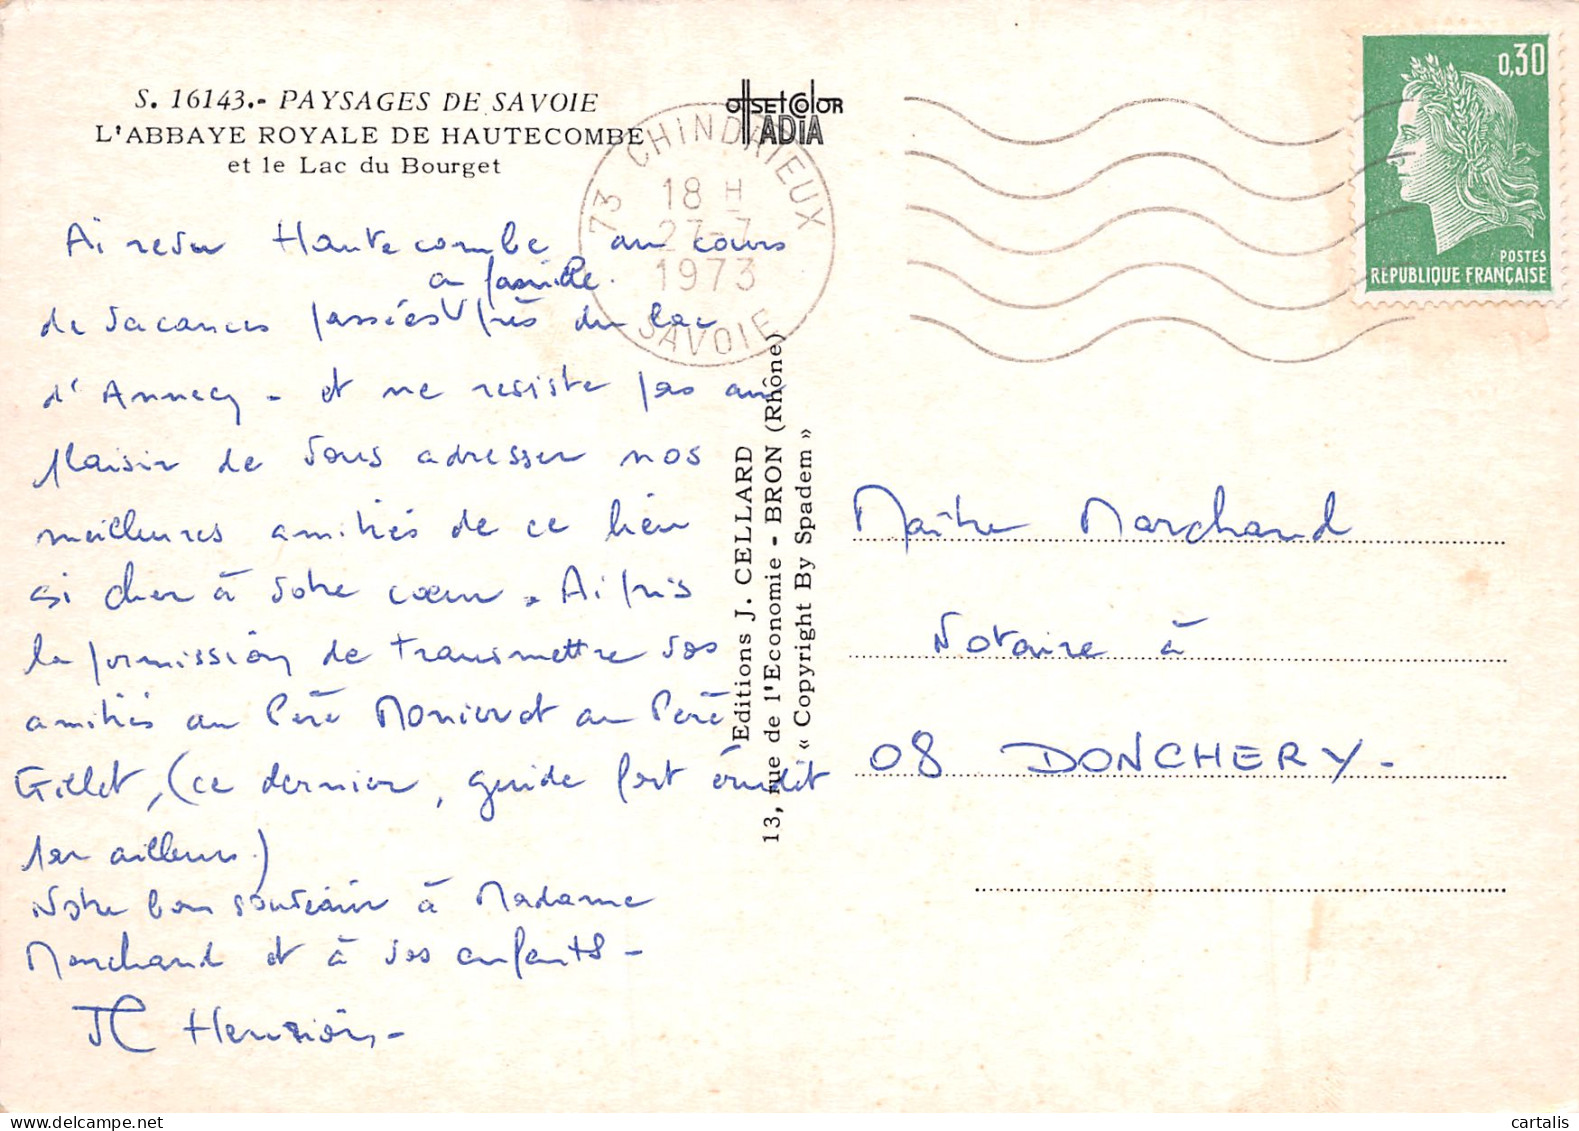 S. 16143.- PAYSAGES DE SAVOIE
L'ABBAYE ROYALE DE HAUTECOMBE
et le Lac du Bourget
offsetcolor
ADIA
73 CHINDRIEUX
18 H
27-7
1973
SAVOIE
0,30
POSTES
REPUBLIQUE FRANÇAISE
Ai revu Hautecombe au cours
en famille.
de vacances passées V près du lac
d'Annecy - et ne résiste pas au
plaisir de vous adresser nos
meilleures amitiés de ce lieu
si cher à votre coeur. Ai pris
la permission de transmettre vos
amitiés au Père Monier et au Père
Gillet, (ce dernier, guide fort érudit
par ailleurs.)
Notre bon souvenir à Madame
Marchand et à vos enfants -
JC Henrion -
Editions J. CELLARD
13, rue de l'Economie - BRON (Rhône)
« Copyright By Spadem »
Maître Marchand
Notaire à
08 DONCHERY -
cartalis
www.delcampe.net